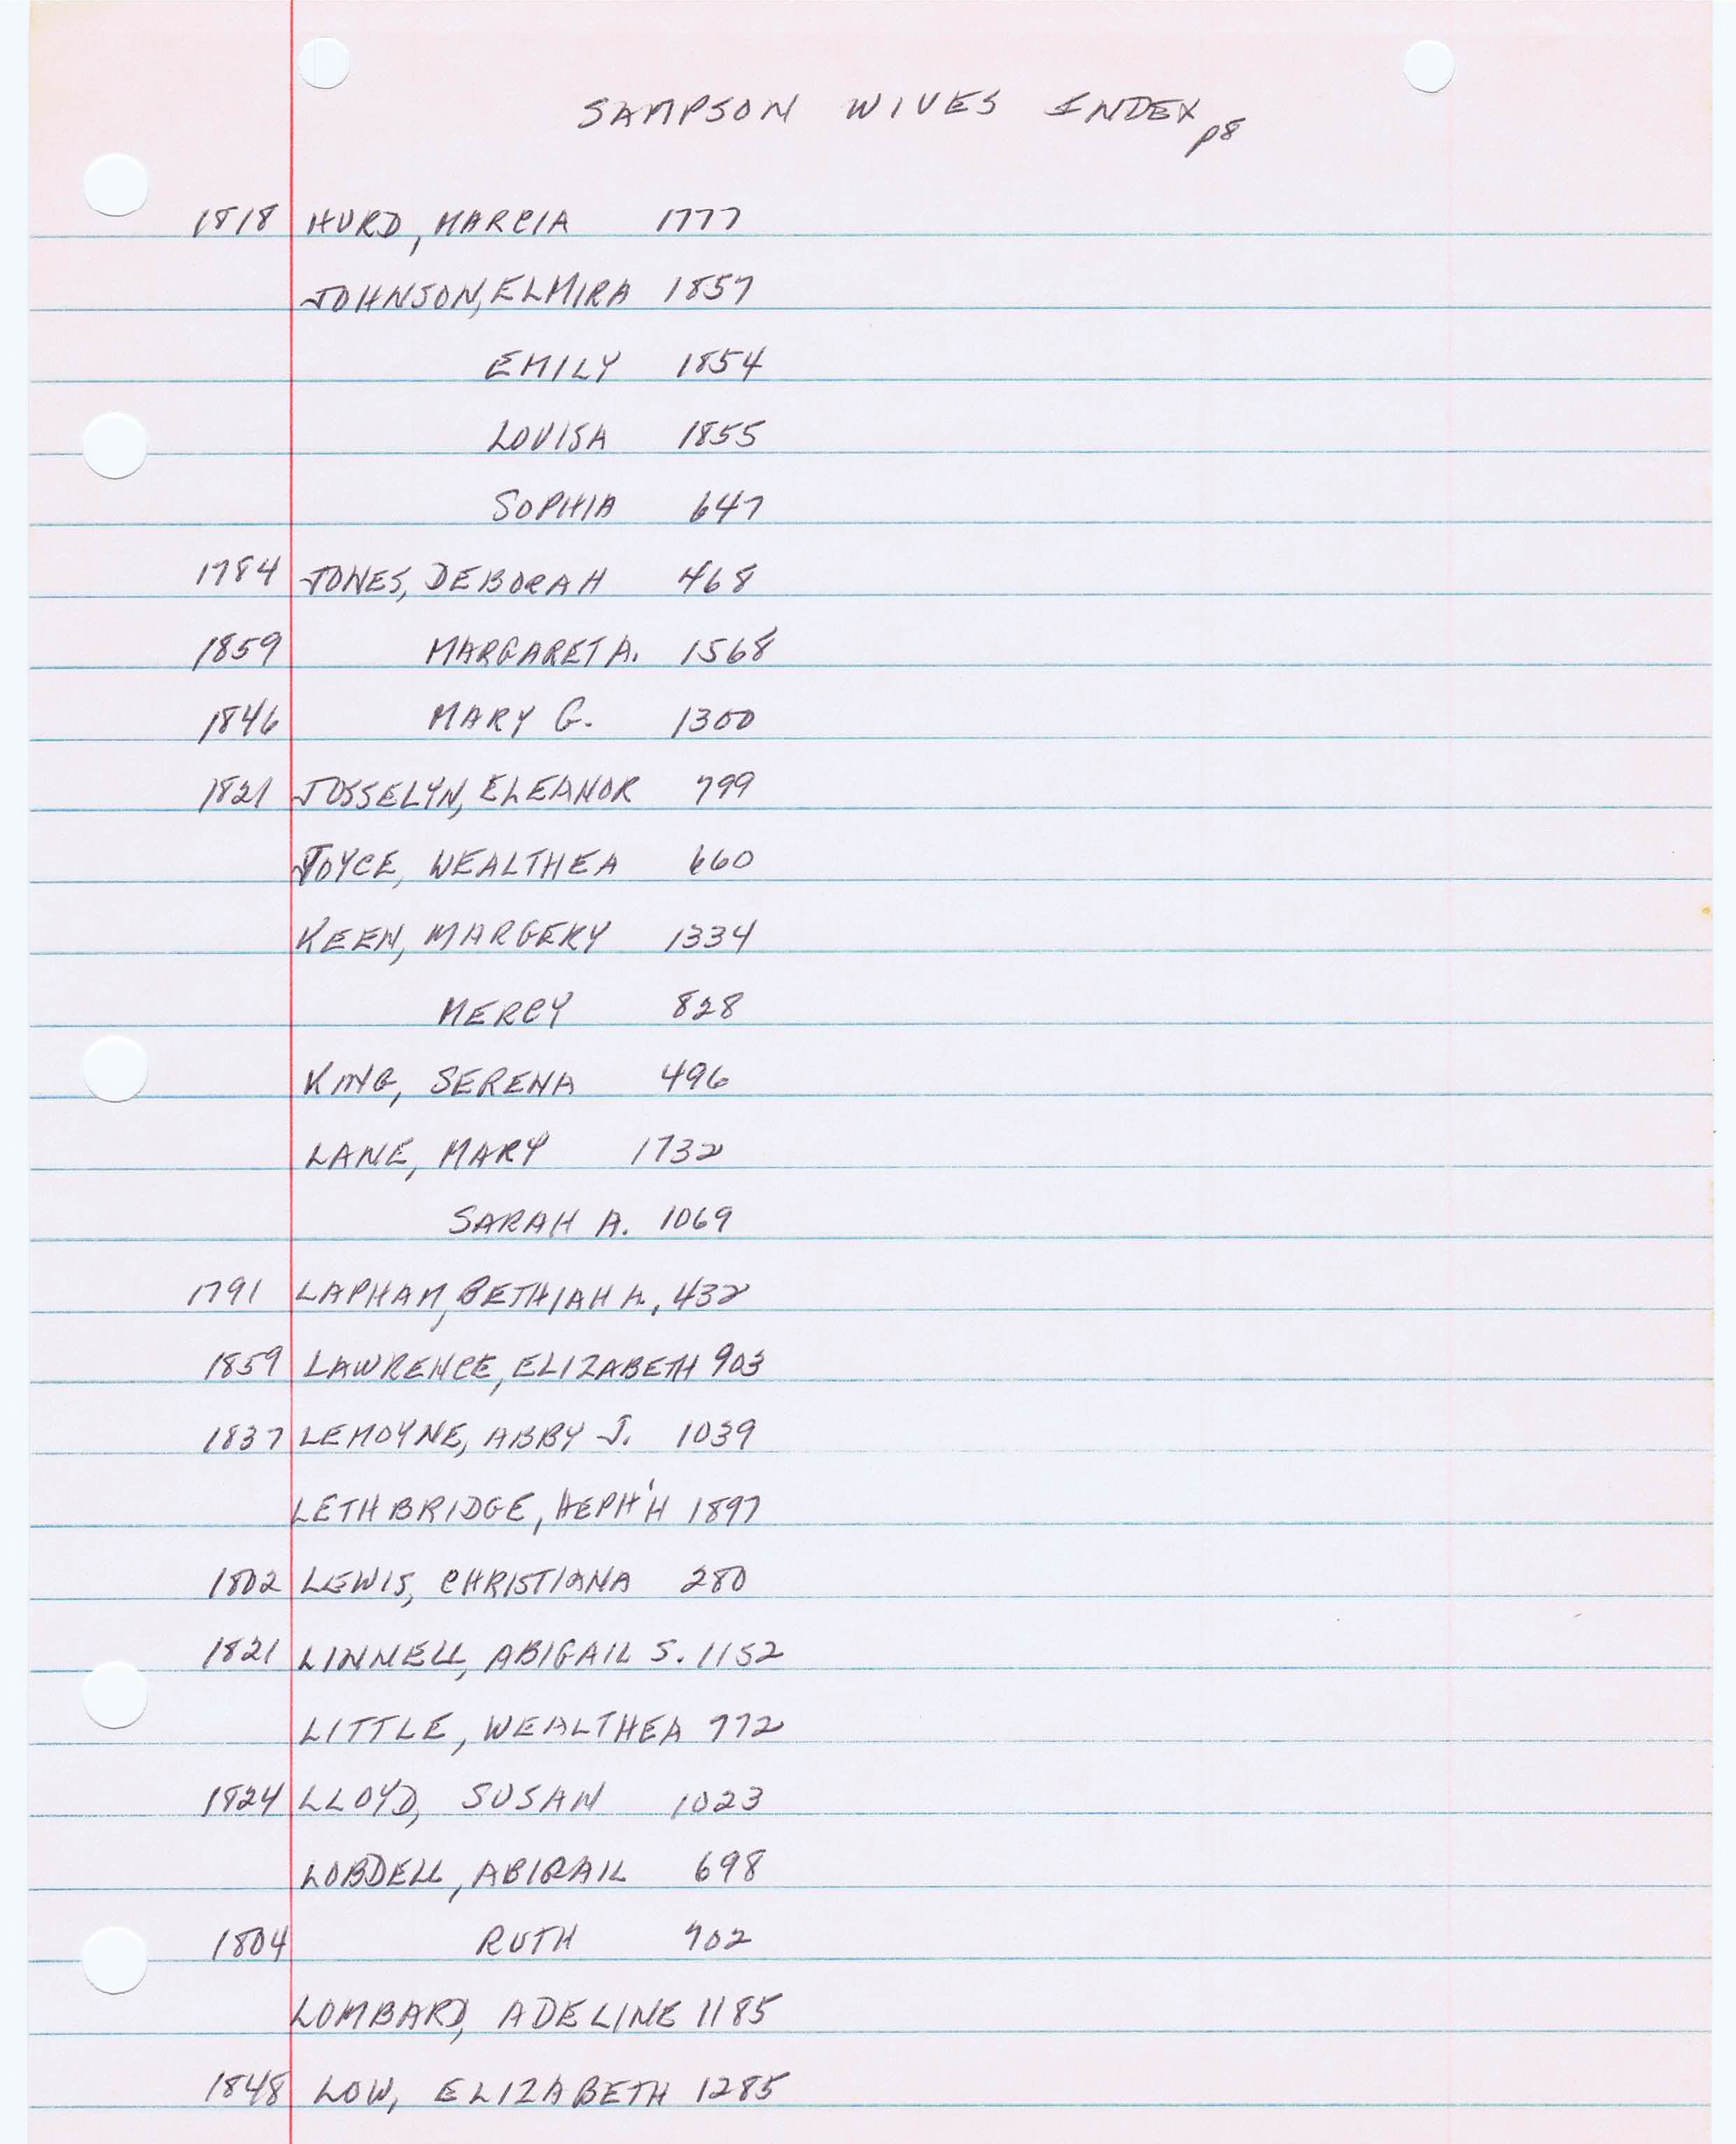 SAMPSON WIVES INDEX p8
1818 HURD, MARCIA 1777
JOHNSON, ELMIRA 1857
EMILY 1854
LOUISA 1855
SOPHIA 647
1784 JONES, DEBORAH 468
1859 MARGARET A. 1568
1846 MARY G. 1300
1821 JOSSELYN, ELEANOR 799
JOYCE, WEALTHEA 660
KEEN, MARGERY 1334
MERCY 828
KING, SERENA 496
LANE, MARY 1732
SARAH A. 1069
1791 LAPHAM, BETHIAH A., 432
1859 LAWRENCE, ELIZABETH 903
1837 LEMOYNE, ABBY J. 1039
LETHBRIDGE, HEPH'H 1897
1802 LEWIS, CHRISTIANA 280
1821 LINNELL, ABIGAIL S. 1152
LITTLE, WEALTHEA 772
1824 LLOYD, SUSAN 1023
LOBDELL, ABIGAIL 698
1804 RUTH 702
LOMBARD, ADELINE 1185
1848 LOW, ELIZABETH 1285